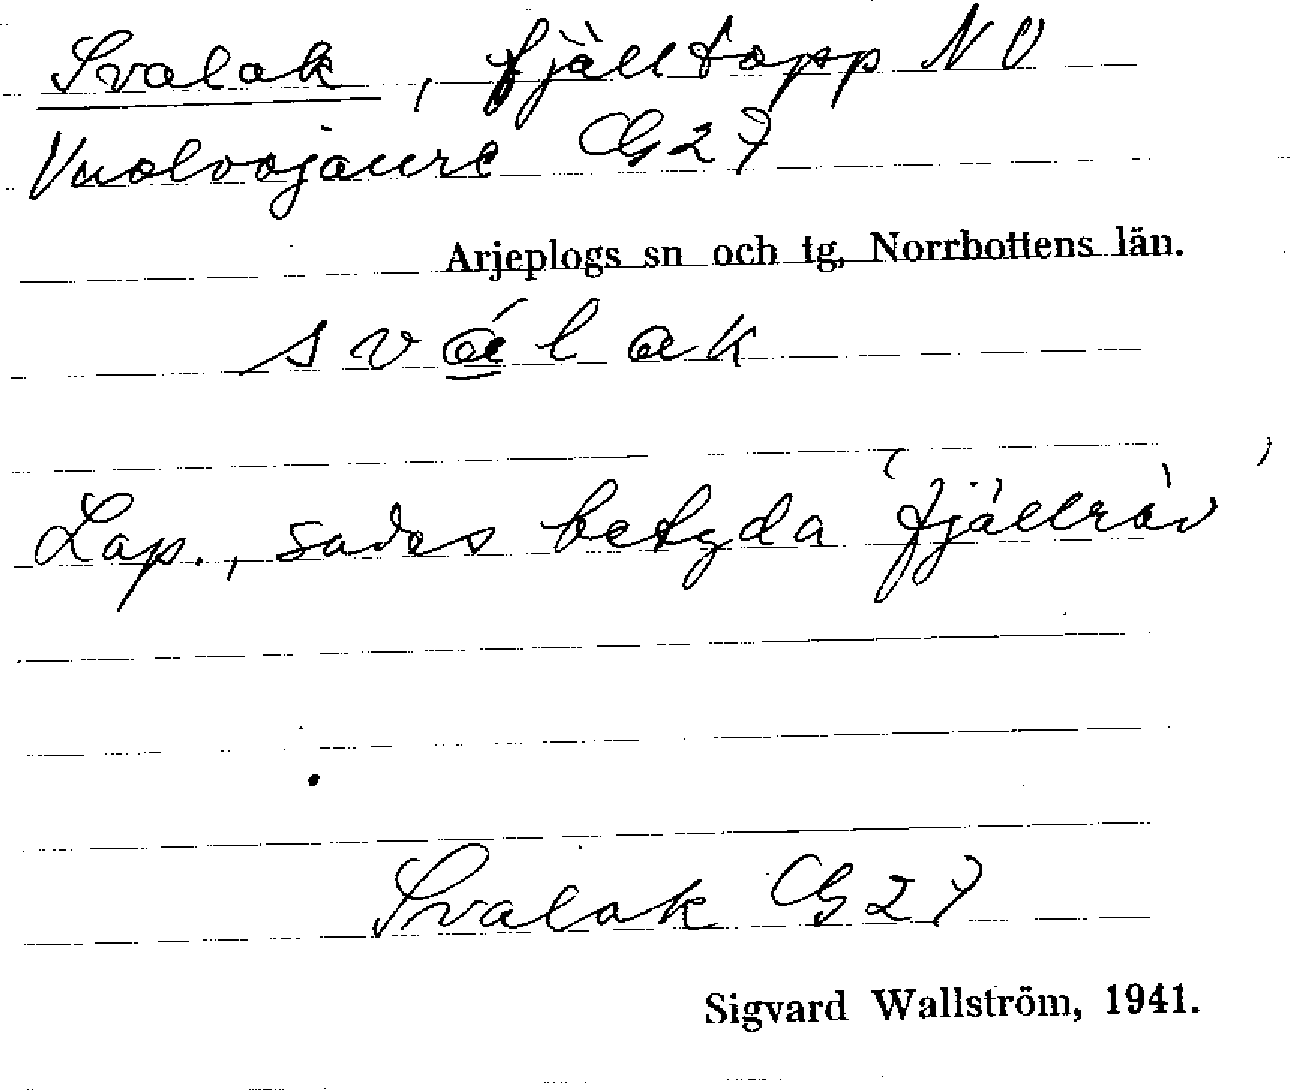 Svalak, fjälltopp NV
Vuolvojaure G27
Arjeplogs sn och tg, Norrbottens län.
sválak
Lap., sades betyda 'fjällräv'
Svalak G27
Sigvard Wallström, 1941.